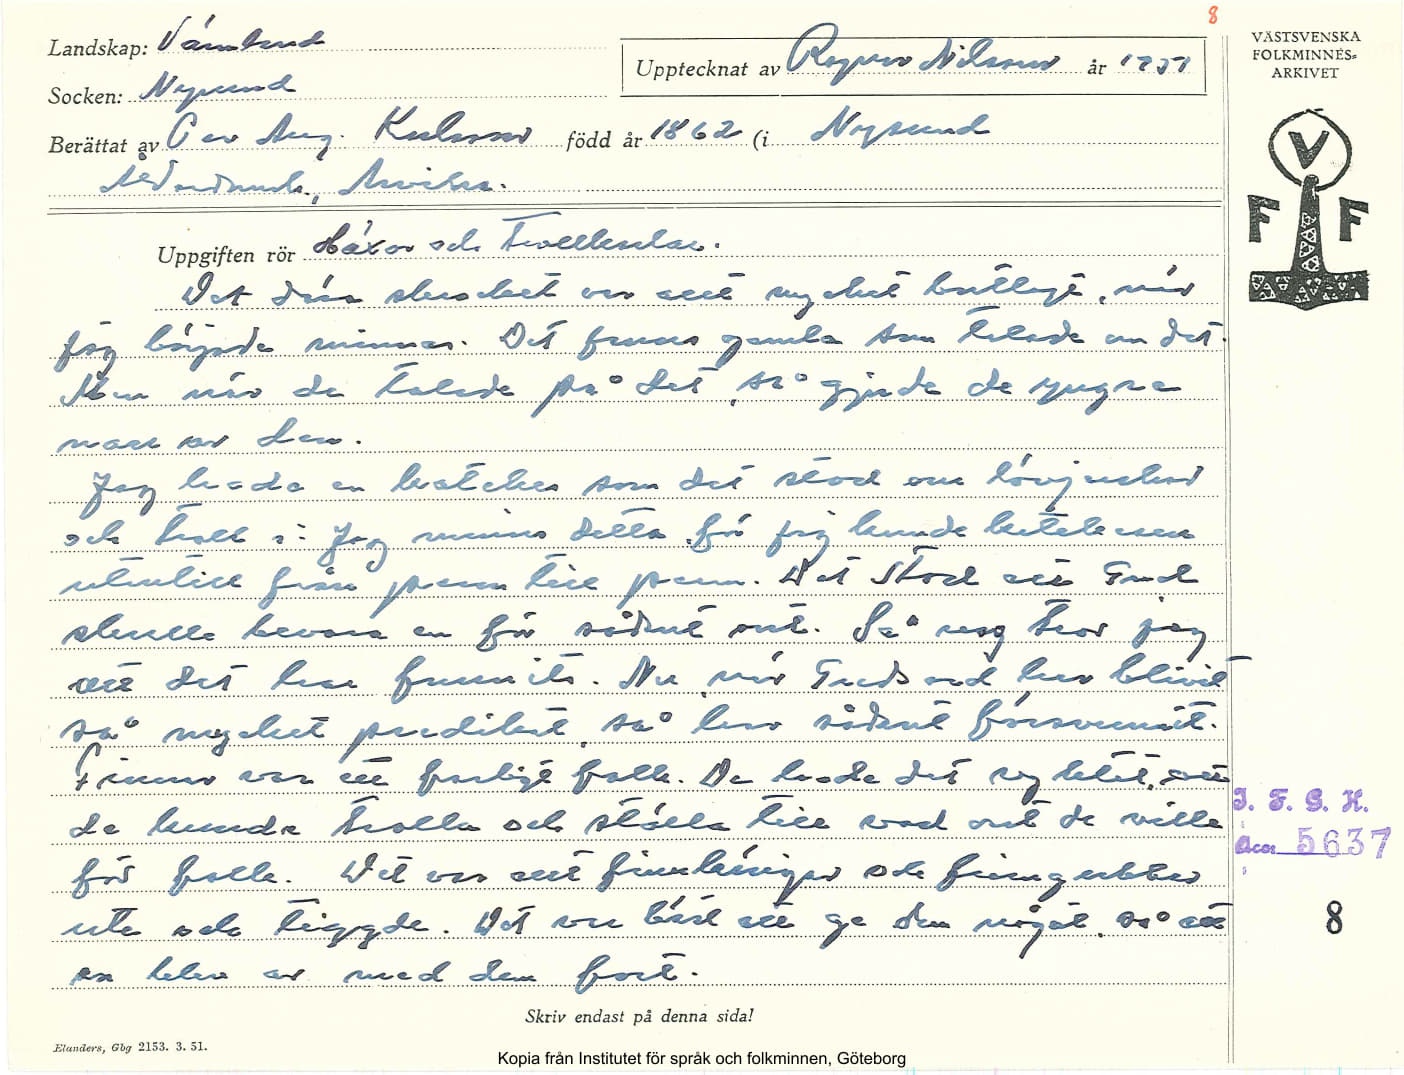 8
Landskap: Värmland
Socken: Nysund
Upptecknat av Ragnar Nilsson år 1951
Berättat av Per Aug. Karlsson född år 1862 (i Nysund
Arvika.
VÄSTSVENSKA
FOLKMINNES-
ARKIVET
V
F F
Uppgiften rör Häxor och Trollkarlar.
Det där var ett mycket , när
jag började minnas. Det fanns gamla som talade om det.
Men när de talade på det, så gjorde de yngre
narr av dem.
Jag hade en katekes som det stod om lövjerskor
och troll i. Jag minns detta, för jag kunde katekesen
utantill från perm till perm. Det stod att Gud
skulle bevara en för sådant ont. Så nog tror jag
att det har funnits. Nu, när Guds ord har blivit
så mycket predikat, så har sådant försvunnit.
Finnar var ett farligt folk. De hade det ryktet, att
de kunde trolla och ställa till vad ont de ville
för folk. Det var att finnkäringar och finngubbar
ute och tiggde. Det var bäst att ge dem något, så att
en blev av med dem fort.
I. F. G. H.
Acc. 5637
8
Skriv endast på denna sida!
Elanders, Gbg 2153. 3. 51.
Kopia från Institutet för språk och folkminnen, Göteborg